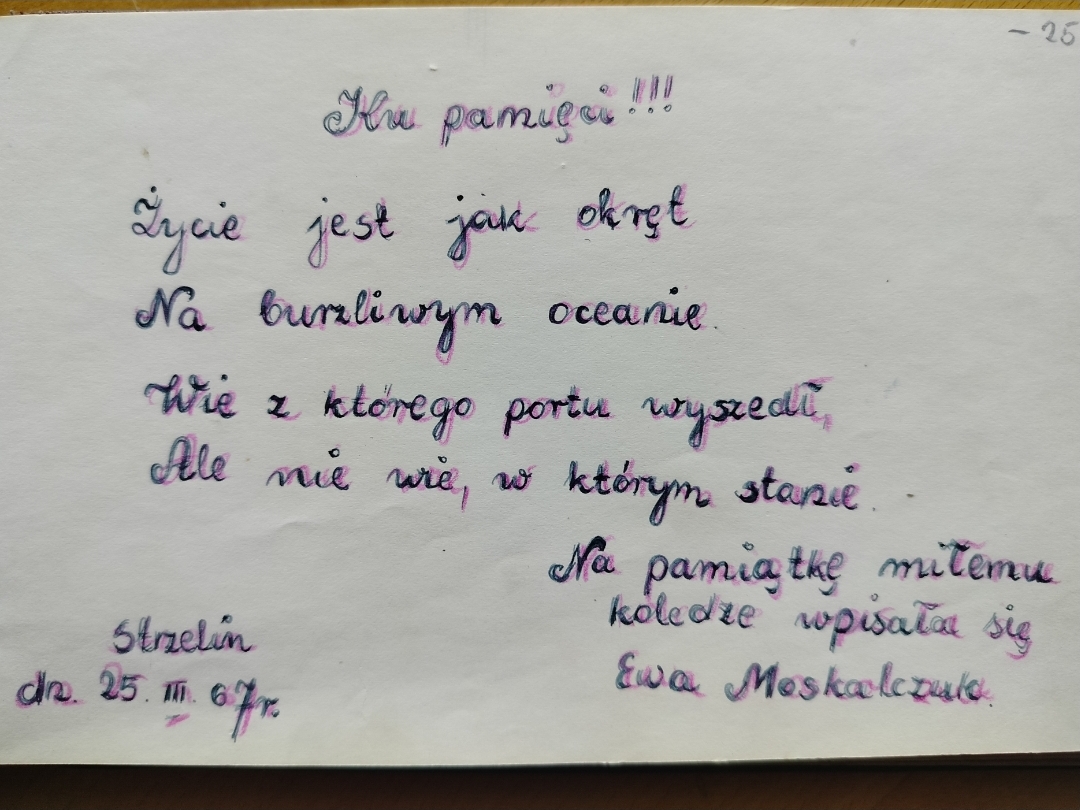 - 25
Ku pamięci!!!
Życie jest jak okręt
Na burzliwym oceanie.
Wie z którego portu wyszedł,
Ale nie wie, w którym stanie.
Na pamiątkę miłemu
koledze wpisała się
Ewa Moskalczuk.
Strzelin
dn. 25. III. 67r.